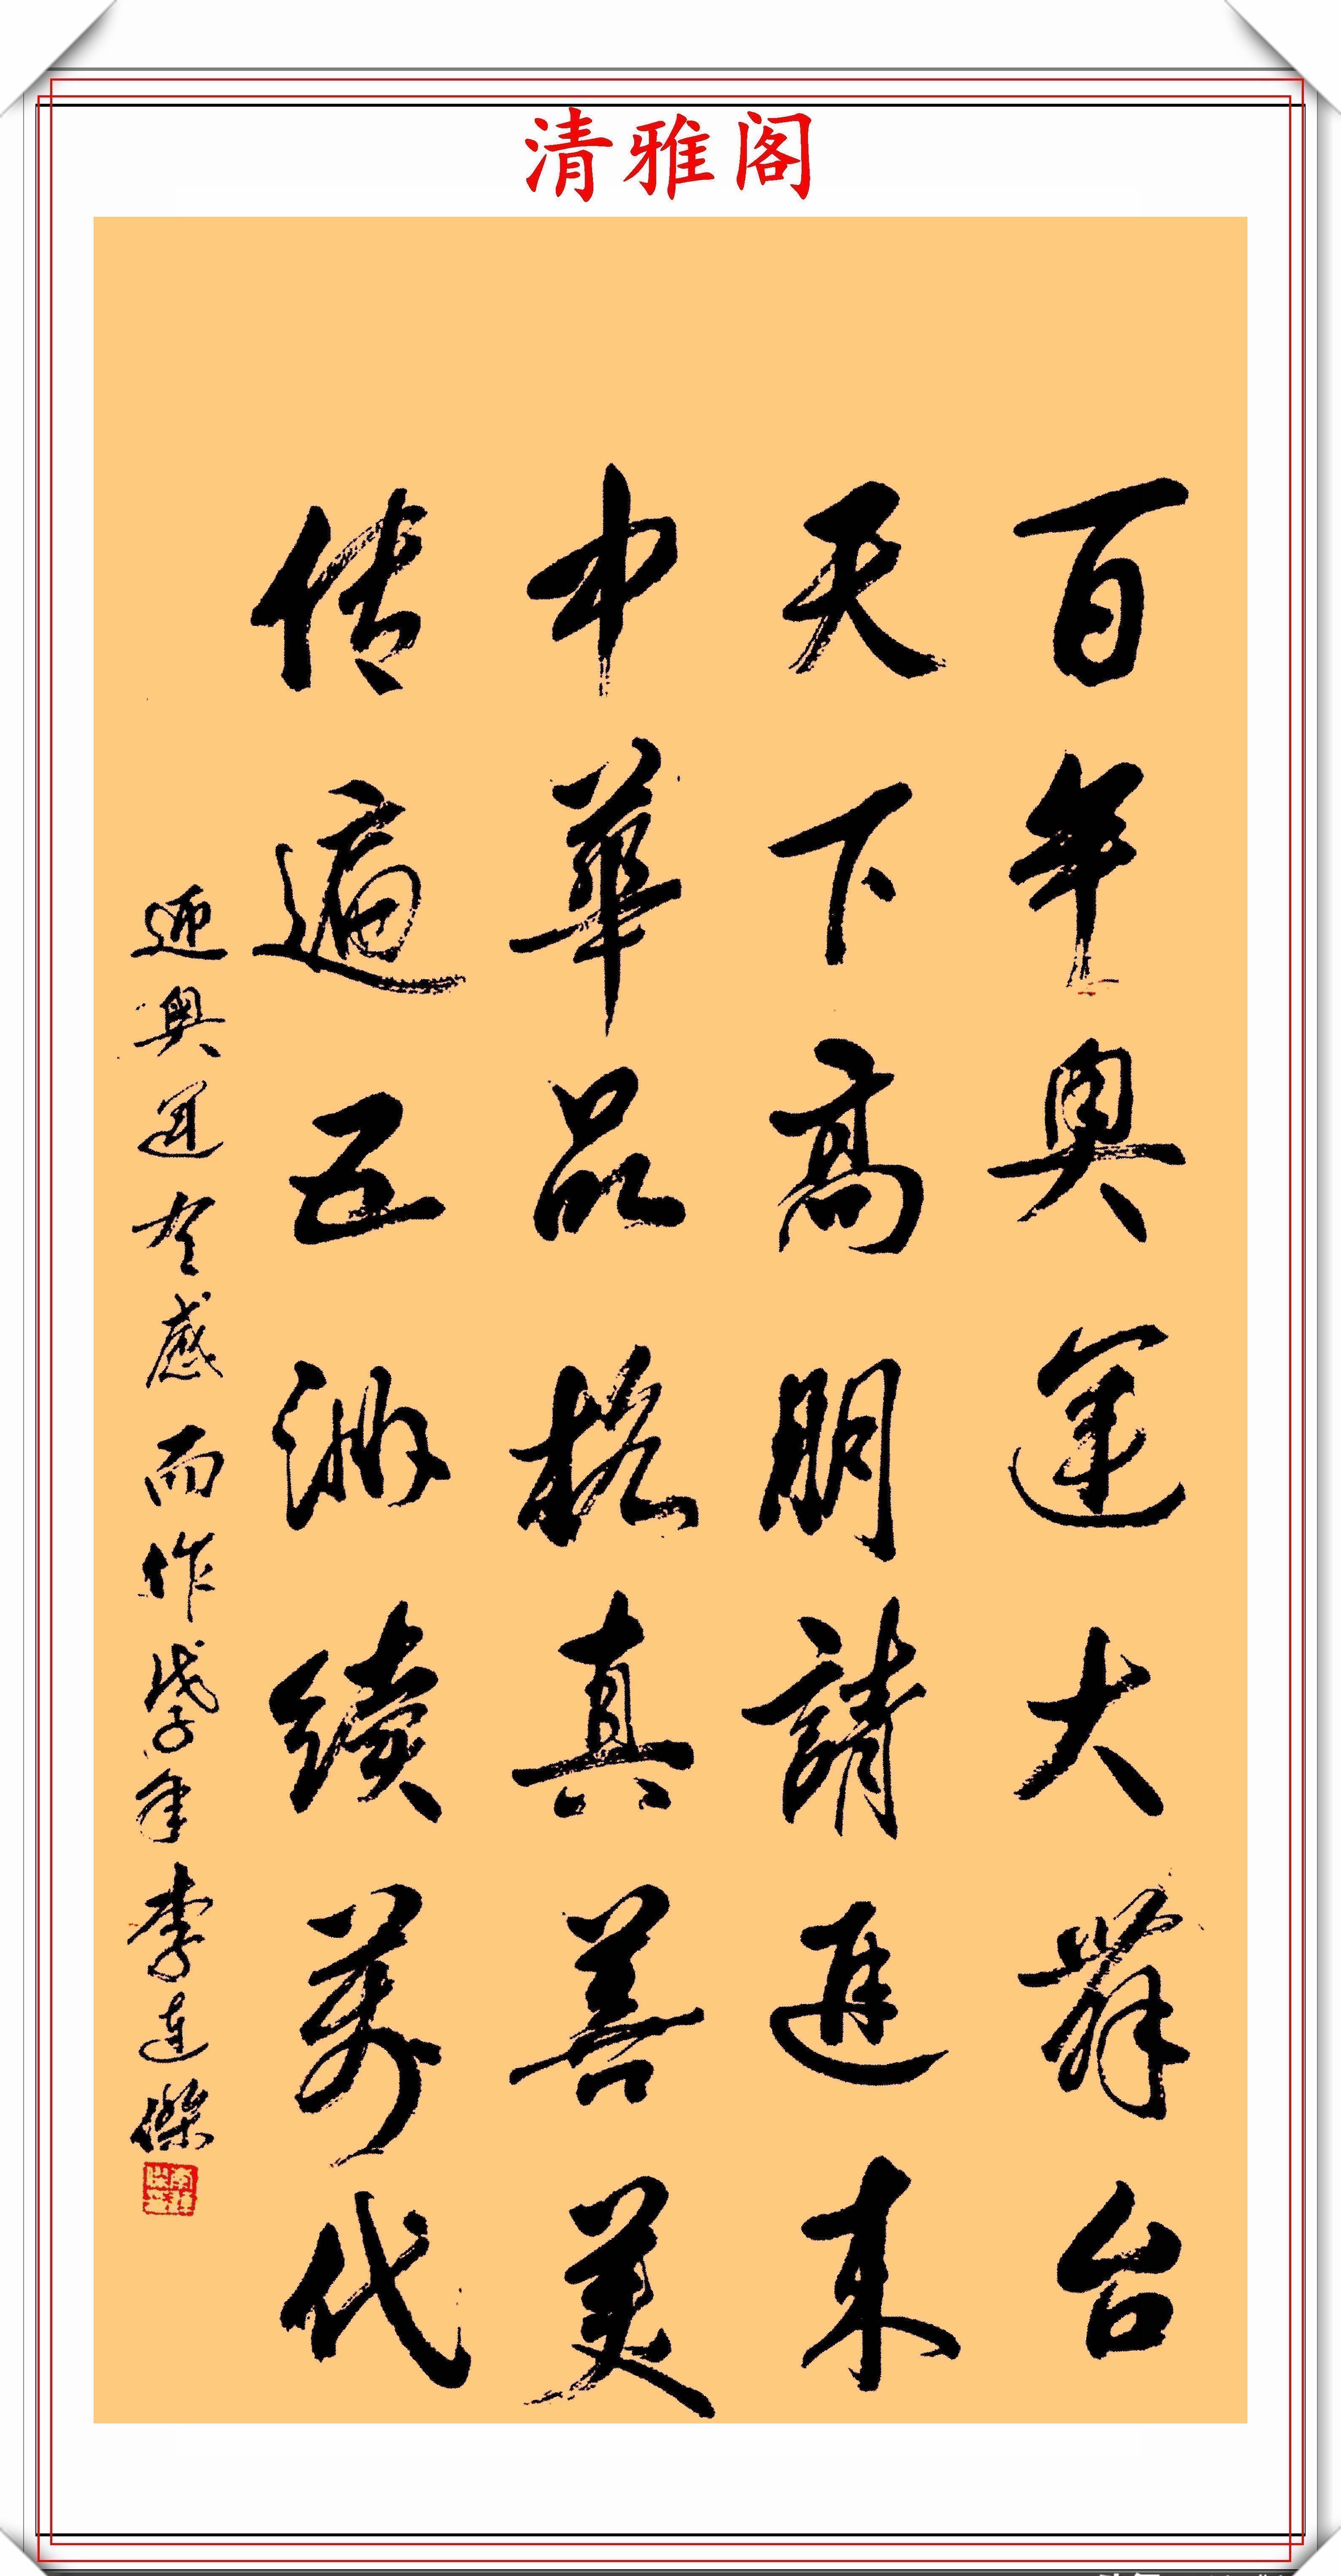 清雅阁
百年奥运大舞台
天下高朋請進来
中華品格真善美
传遍五洲續萬代
迎奥运有感而作戊子年李连傑